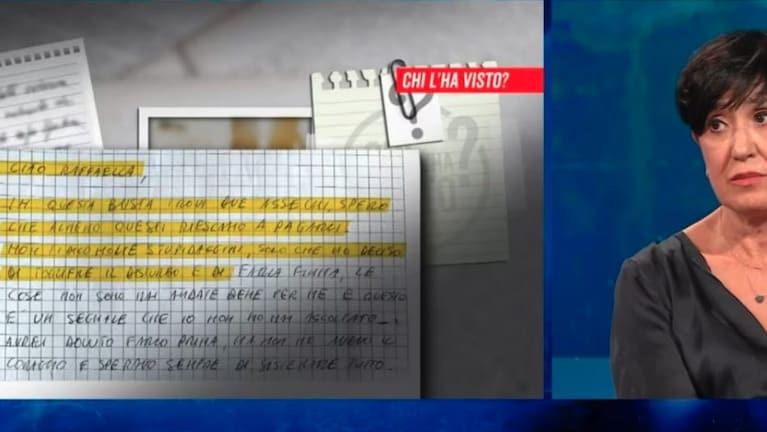 CHI L'HA VISTO?
CIAO RAFFAELLA,
IN QUESTA BUSTA TROVI DUE ASSEGNI, SPERO
CHE ALMENO QUESTI RIESCANO A PAGARLI.
NON MOLTE STUPIDAGGINI, SOLO CHE HO DECISO
DI TOGLIERE IL DISTURBO E DI FARLA FINITA, LE
COSE NON SONO MAI ANDATE BENE PER ME E QUESTO
E' UN SEGNALE CHE IO NON HO MAI ASCOLTATO...
AVREI DOVUTO FARLO PRIMA, MA NON HO AVUTO IL
CORAGGIO E SPERAVO SEMPRE DI SISTEMARE TUTTO.